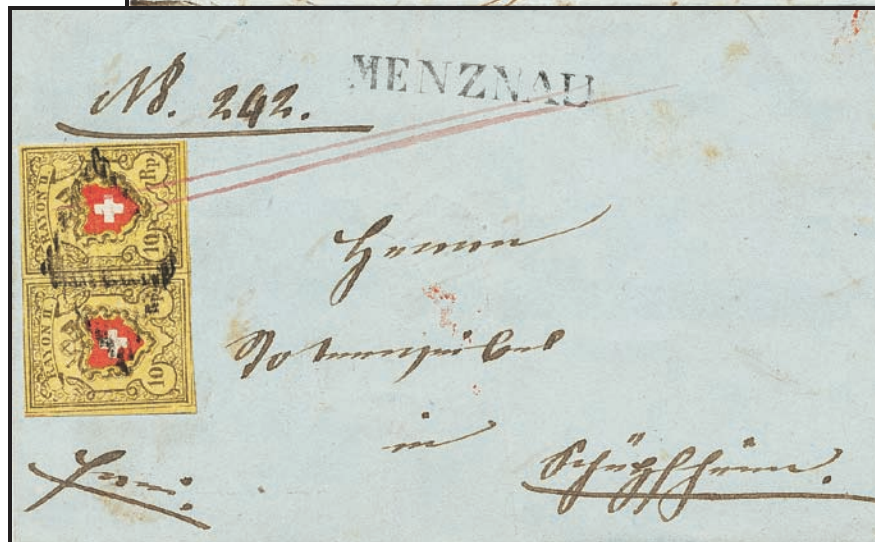 No. 242.
MENZNAU
RAYON II.
10 Rp
RAYON II.
10 Rp
Herrn
in
Schüpfheim.